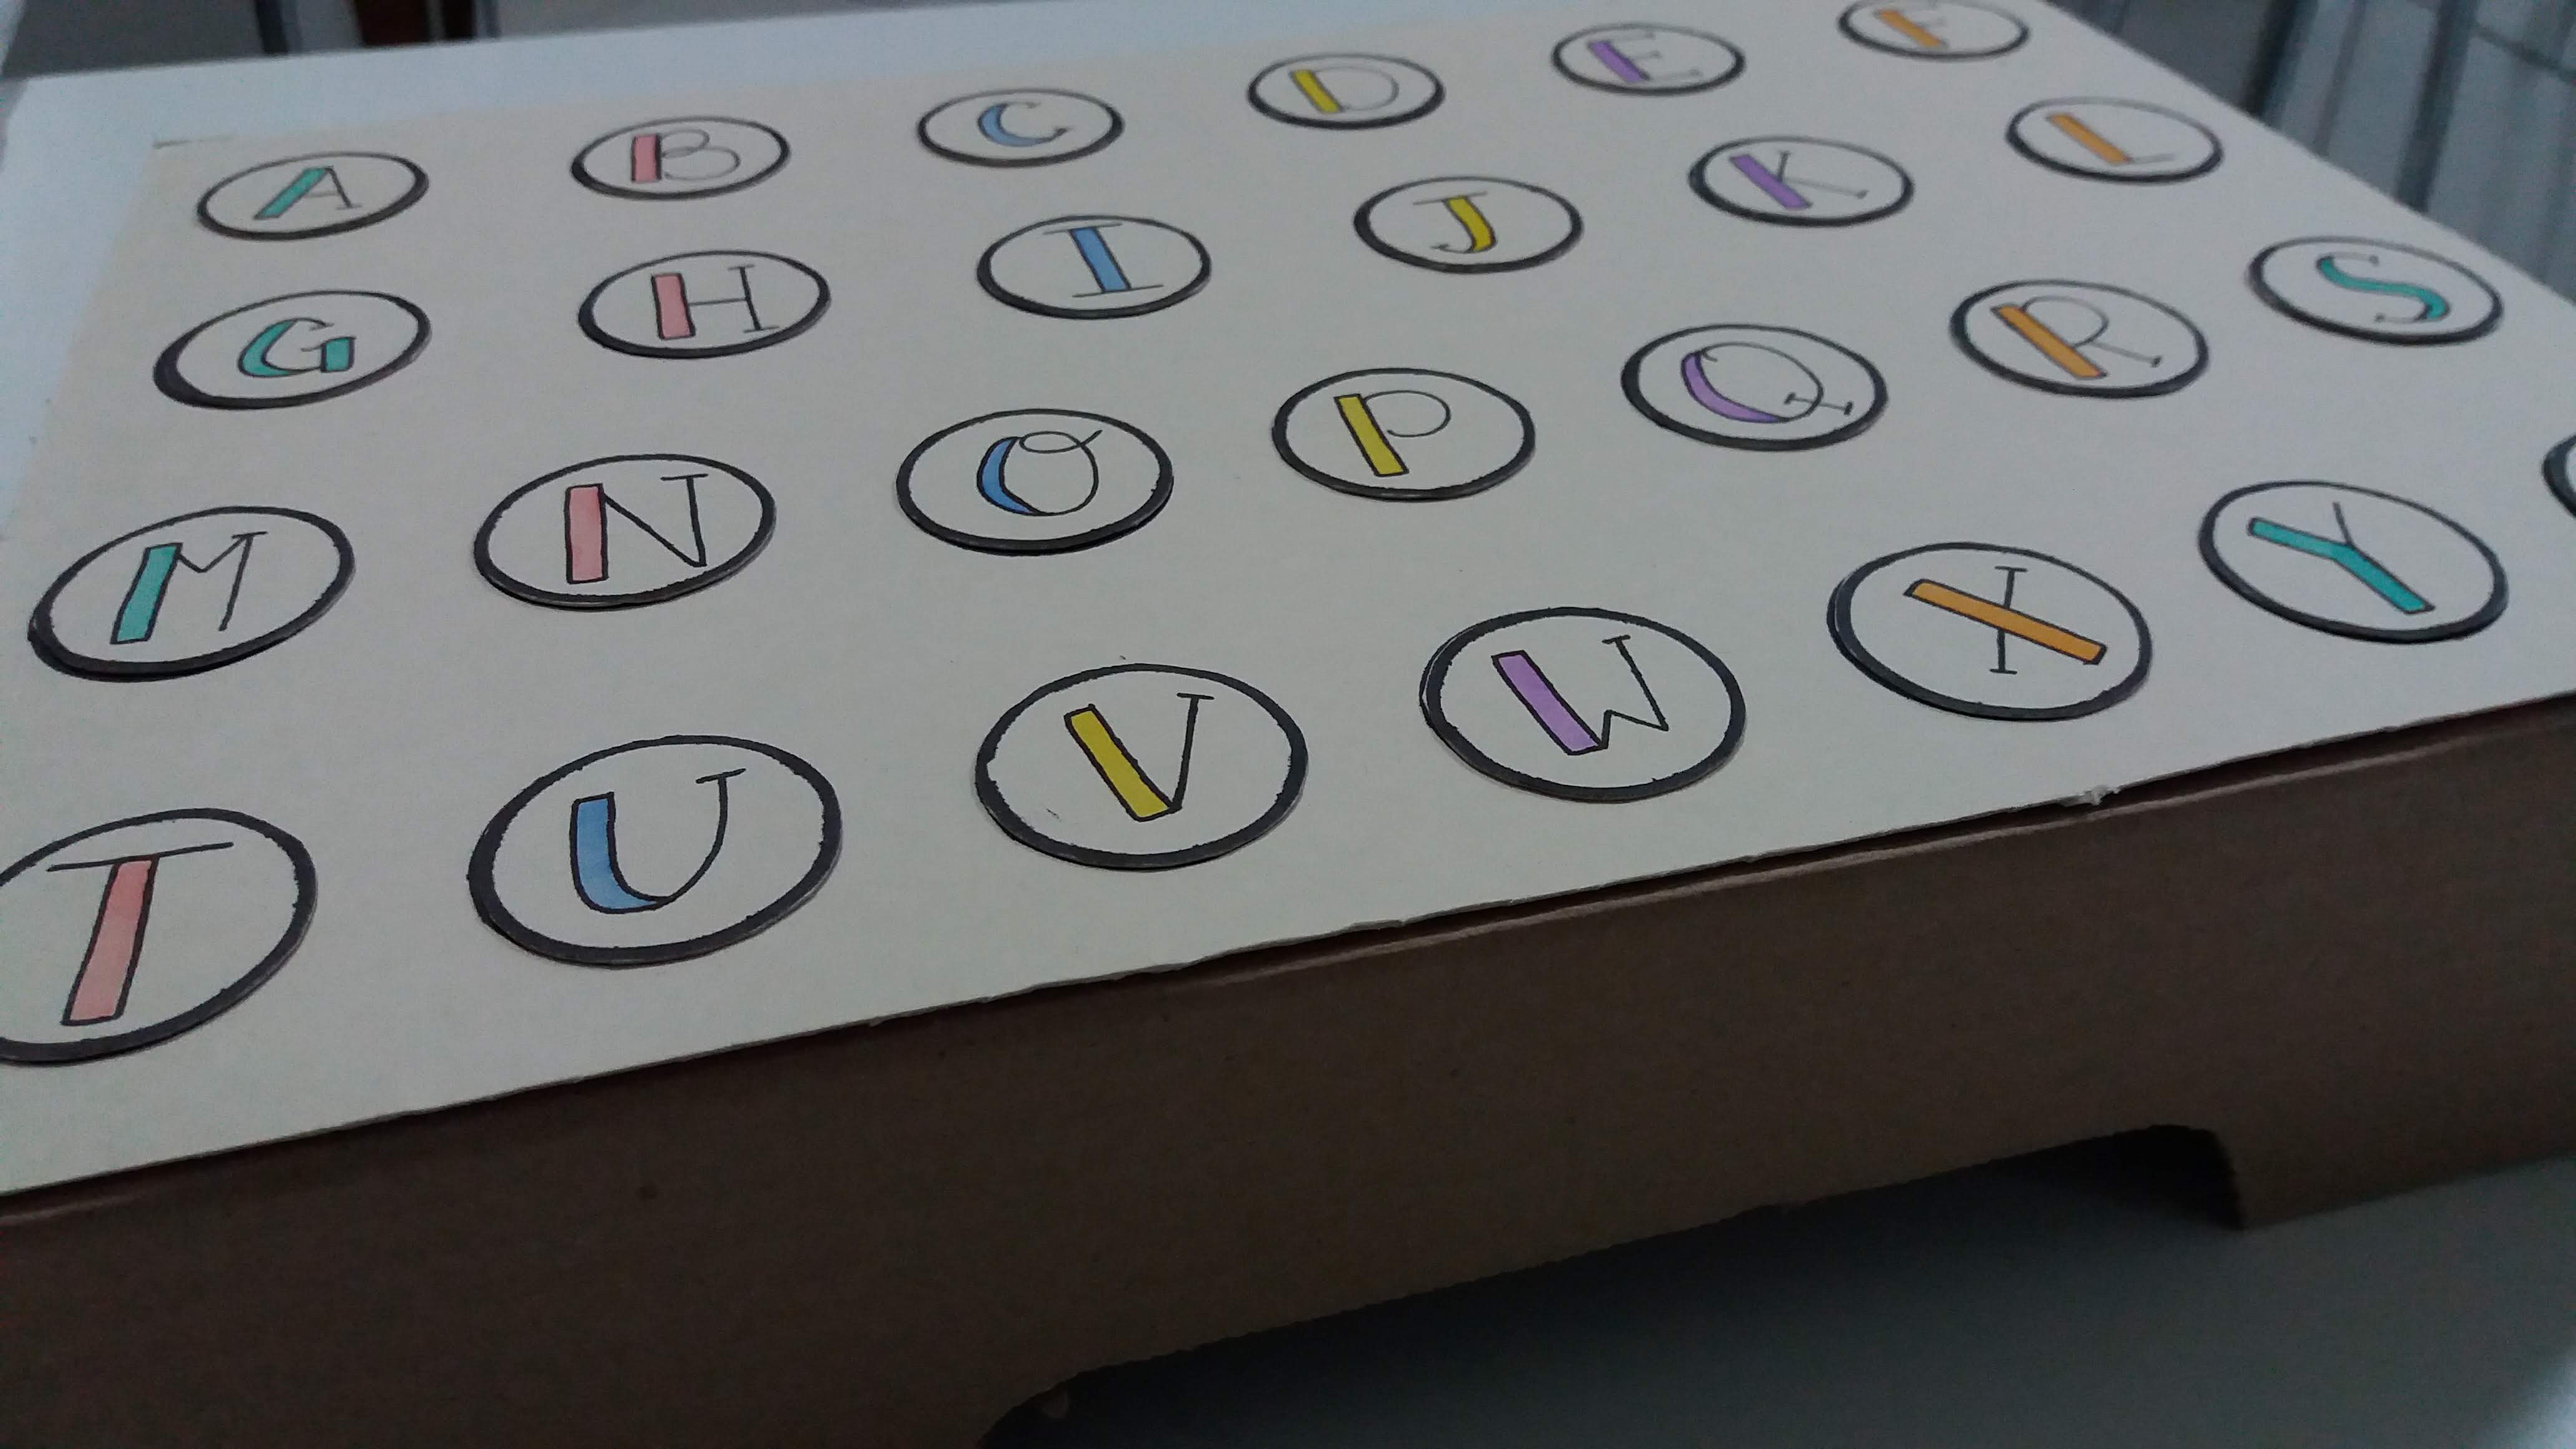 A B C D E F
G H I J K L
M N O P Q R S
T U V W X Y